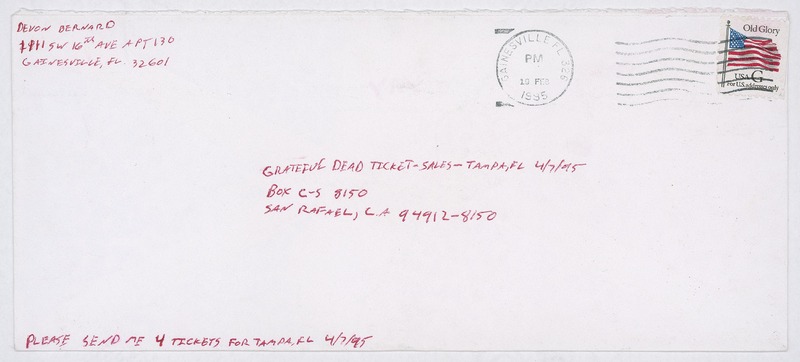 DEVON BERNARD
1111 SW 16th AVE APT 130
GAINESVILLE, FL. 32601
GAINESVILLE FL 326
PM
10 FEB
1995
Old Glory
USA G
For U.S. addresses only
GRATEFUL DEAD TICKET-SALES-TAMPA, FL 4/7/95
BOX C-S 8150
SAN RAFAEL, CA 94912-8150
PLEASE SEND ME 4 TICKETS FOR TAMPA, FL 4/7/95